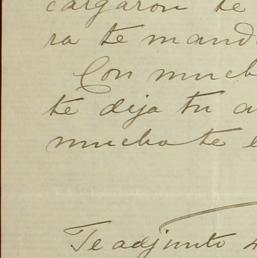 cargaron te
ra te mand
Con much
te dija tu a
mucho te
Te adjunto